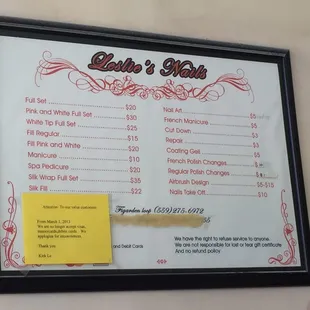 Leslie's Nails
Full Set $20
Pink and White Full Set $30
White Tip Full Set $25
Fill Regular $15
Fill Pink and White $20
Manicure $10
Spa Pedicure $20
Silk Wrap Full Set $35
Silk Fill $22
Nail Art £5
French Manicure $5
Cut Down $3
Repair $3
Coating Gell $5
French Polish Changes
Regular Polish Changes
Airbrush Design $5-$10
Nails Take Off $10
Figarden loop (559)275-6972
and Debit Cards
We have the right to refuse service to anyone.
We are not responsible for lost or tear gift certificate
And no refund policy
Attention: To our value customers
From March 1, 2011
We are no longer accept visa,
Thank you